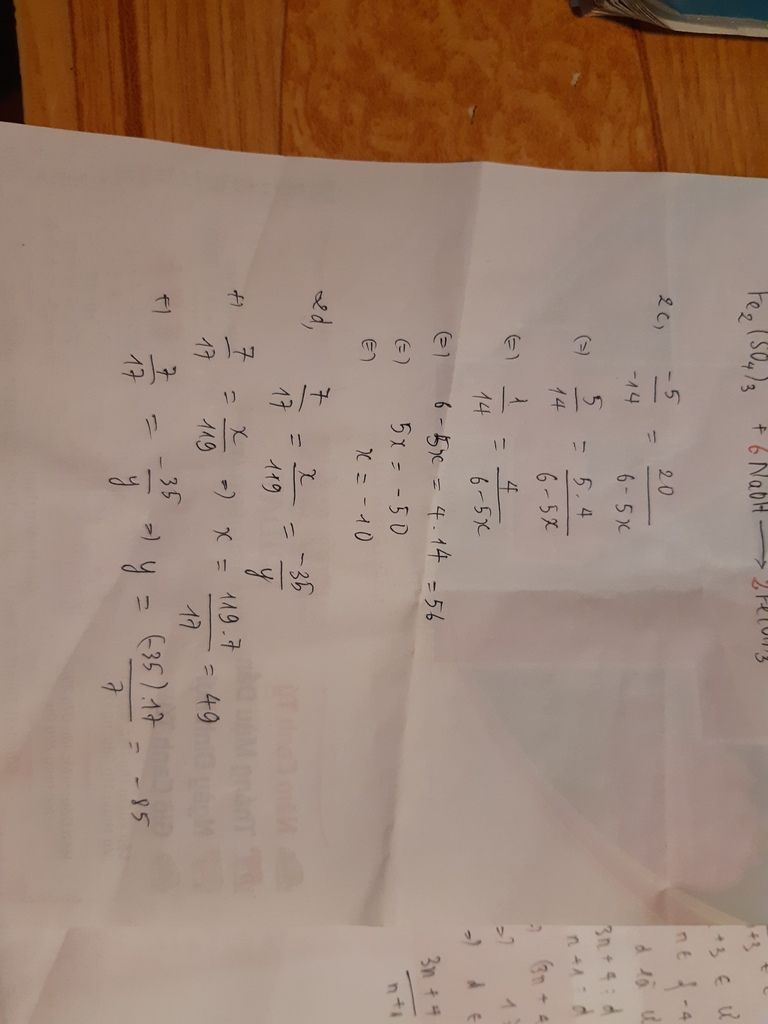 Fe2(SO4)3 + 6 NaOH →
2c, -5/-14 = 20/6-5x
(=) 5/14 = 5.4/6-5x
(=) 1/14 = 4/6-5x
(=) 6-5x = 4.14 = 56
(=) 5x = -50
(=) x = -10
2d, 7/17 = x/119 = -35/y
+) 7/17 = x/119 => x = 119.7/17 = 49
+) 7/17 = -35/y => y = (-35).17/7 = -85
n ∈ {-4
3n+4 : d
n+1 : d
(3n+4
=) 1
=) d ∈
3n+4/n+1